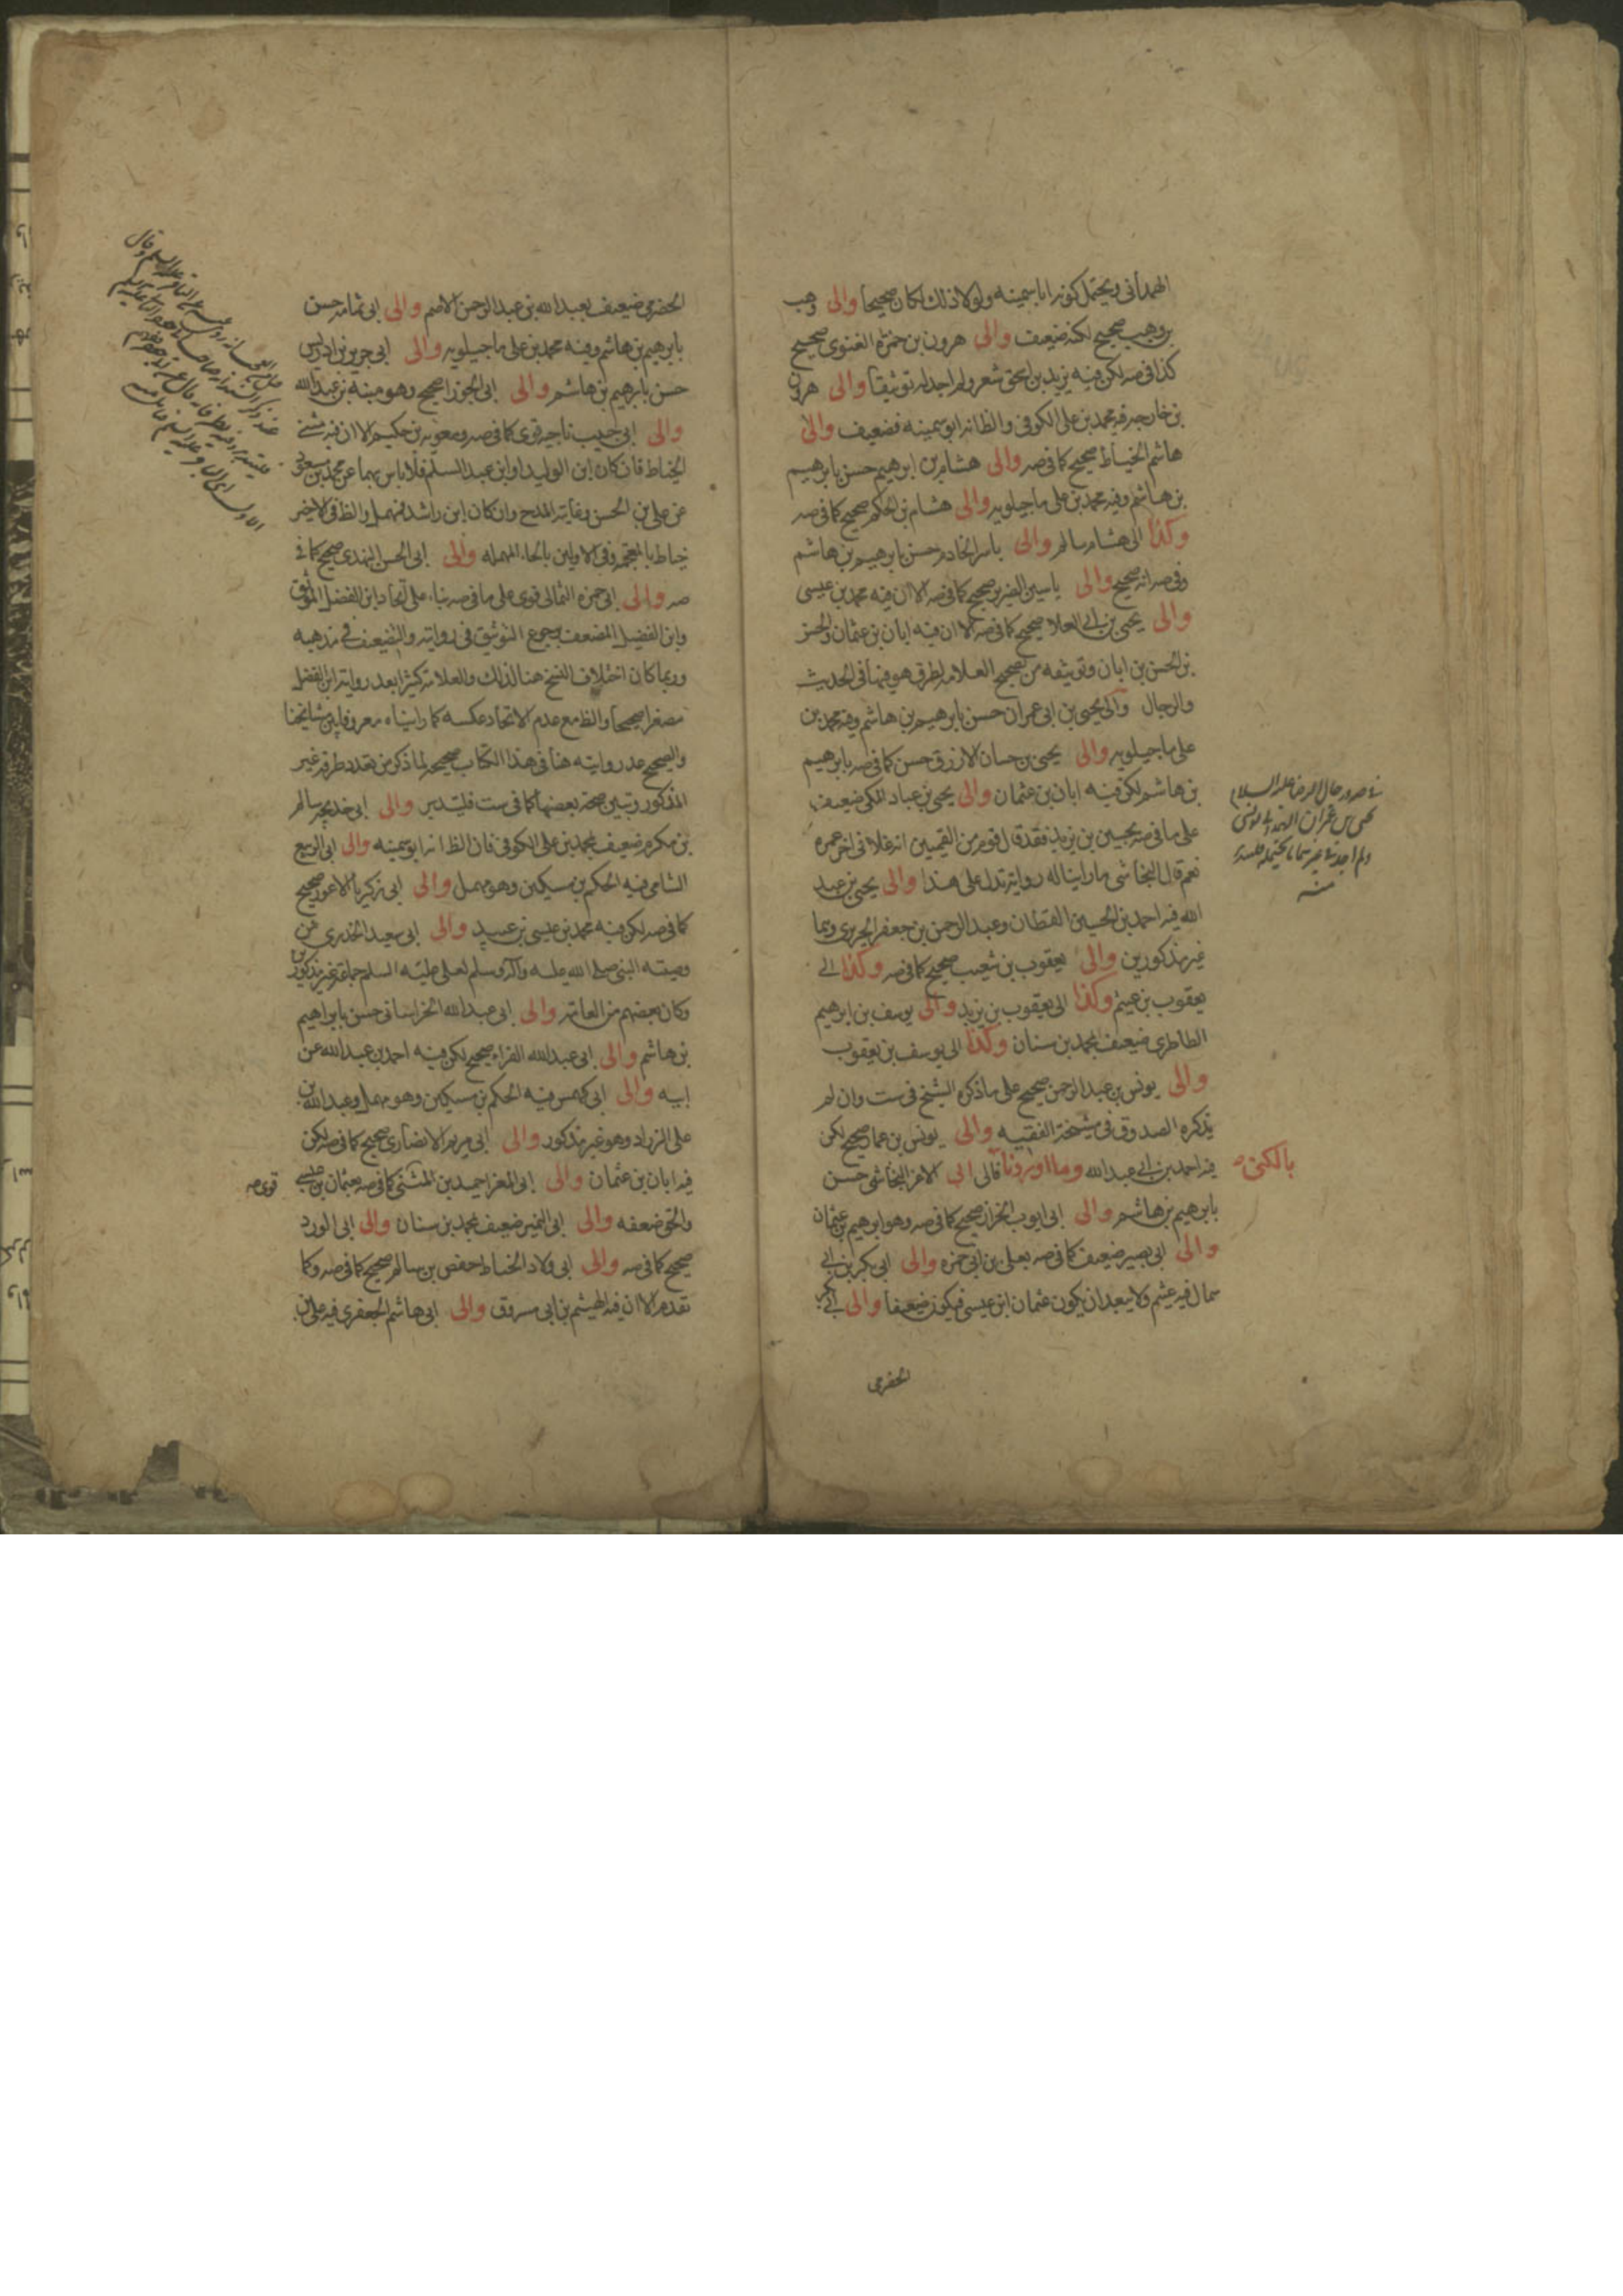 الهمداني ويحتمل كونه ابا سمينه ولولا ذلك لكان صحيحا والى وهب
بن وهب صحيح لكنه ضعيف والى هرون بن حمزه الغنوى صحيح
كذا في صه لكن فيه يزيد بن اسحق شعر ولم اجد له توثيقا والى هرون
بن خارجه فيه محمد بن على الكوفى والظ انه ابو سمينه فضعيف والى
هاشم الخياط صحيح كما في صه والى هشام بن ابرهيم حسن بابرهيم
بن هاشم وفيه محمد بن على ماجيلويه والى هشام بن الحكم صحيح كما في صه
وكذا الى هشام بن سالم والى ياسر الخادم حسن بابرهيم بن هاشم
وفي صه انه صحيح والى ياسين الضرير صحيح كما في صه الا ان فيه محمد بن عيسى
والى يحيى بن ابي العلا صحيح كما في صه الا ان فيه ابان بن عثمان والحسين
بن الحسن بن ابان وتوثيقه من تصحيح العلامه لطرق هو فيها في الحديث
والرجال والى يحيى بن ابى عمران حسن بابرهيم بن هاشم وفيه محمد بن
على ماجيلويه والى يحيى بن حسان الازرق حسن كما في صه بابرهيم
بن هاشم لكن فيه ابان بن عثمان والى يحيى بن عباد المكى ضعيف
على ما في صه بحسين بن يزيد فقد قال قوم من القميين انه غلا في اخر عمره
نعم قال النجاشى ما راينا له رواية تدل على هذا والى يحيى بن عبد
الله فيه احمد بن الحسين القطان وعبد الرحمن بن جعفر الجريرى وهما
غير مذكورين والى يعقوب بن شعيب صحيح كما في صه وكذا الى
يعقوب بن عيثم وكذا الى يعقوب بن يزيد والى يوسف بن ابرهيم
الطاطرى ضعيف بمحمد بن سنان وكذا الى يوسف بن يعقوب
والى يونس بن عبد الرحمن صحيح على ما ذكره الشيخ في ست وان لم
يذكره الصدوق في مشيخة الفقيه والى يونس بن عمار صحيح لكن
فيه احمد بن ابي عبد الله وما اوردنا بالكنى قالى ابى الاغر النحاشى حسن
بابرهيم بن هاشم والى ابى ايوب الخزاز صحيح كما في صه وهو ابرهيم بن عثمان
والى ابى بصير ضعيف كما في صه بعلى بن ابى حمزه والى ابى بكر بن ابى
سمال فيه عيثم ولا يبعد ان يكون عثمان ابن عيسى فيكون ضعيفا والى ابى بكر
الحضرمى
يحيى بن عمران الهمدانى يونسى
منه
الحضرمى ضعيف بعبد الله بن عبد الرحمن الاصم والى ابى ثمامه حسن
بابرهيم بن هاشم وفيه محمد بن على ماجيلويه والى ابى جرير بن ادريس
حسن بابرهيم بن هاشم والى ابى الجوزا صحيح وهو منبه بن عبد الله
والى ابى حبيب ناجيه قوى كما في صه ومعويه بن حكيم الا ان فيه مثنى
الخياط فان كان ابن الوليد او ابن عبد السلم فلا باس بهما عن محمد بن مسعود
عن على بن الحسن وغايته المدح وان كان ابن راشد فمهمل والظ في الاخير
خياط بالمعجمه وفي الاولين بالحاء المهمله والى ابى الحسن النهدى صحيح كما في
صه والى ابى حمزه الثمالى قوى على ما في صه بناء على اتحاد ابن الفضل الموثق
وابن الفضيل المضعف ورجوع التوثيق في روايته والتضعيف في مذهبه
وربما كان اختلاف النسخ هنا لذلك والعلامه كثيرا يعد رواية ابن الفضيل
مصغرا صحيحا والظ مع عدم الاتحاد عكسه كما راينا معروفا بين مشايخنا
والصحيح عد روايته هنا في هذا الكتاب صحيحه لما ذكر من تعدد طرقه غير
المذكور وتبين صحه بعضها كما في ست فليتدبر والى ابى خديجه سالم
بن مكرم ضعيف بمحمد بن على الكوفى فان الظ انه ابو سمينه والى ابى الربيع
الشامى فيه الحكم بن مسكين وهو مهمل والى ابى زكريا الاعور صحيح
كما في صه لكن فيه محمد بن عيسى بن عبيد والى ابى سعيد الخدرى من
وصيته النبى صلى الله عليه واله وسلم لعلى عليه السلم جماعة غير مذكورين
وكان بعضهم من العامه والى ابى عبد الله الخراسانى حسن بابراهيم
بن هاشم والى ابى عبد الله الفراء صحيح لكن فيه احمد بن عبد الله عن
ابيه والى ابى كهمس فيه الحكم بن مسكين وهو مهمل وعبد الله بن
على الزراد وهو غير مذكور والى ابى مريم الانصارى صحيح كما في صه لكن
فيه ابان بن عثمان والى ابى المغرا حميد بن المثنى كما في صه بعثمان بن عيسى
قوى صه
والحق ضعفه والى ابى النمير ضعيف بمحمد بن سنان والى ابى الورد
صحيح كما في صه والى ابى ولاد الخياط حفص بن سالم صحيح كما في صه وكما
تقدم الا ان فيه الهيثم بن ابى مسروق والى ابى هاشم الجعفرى فيه على بن